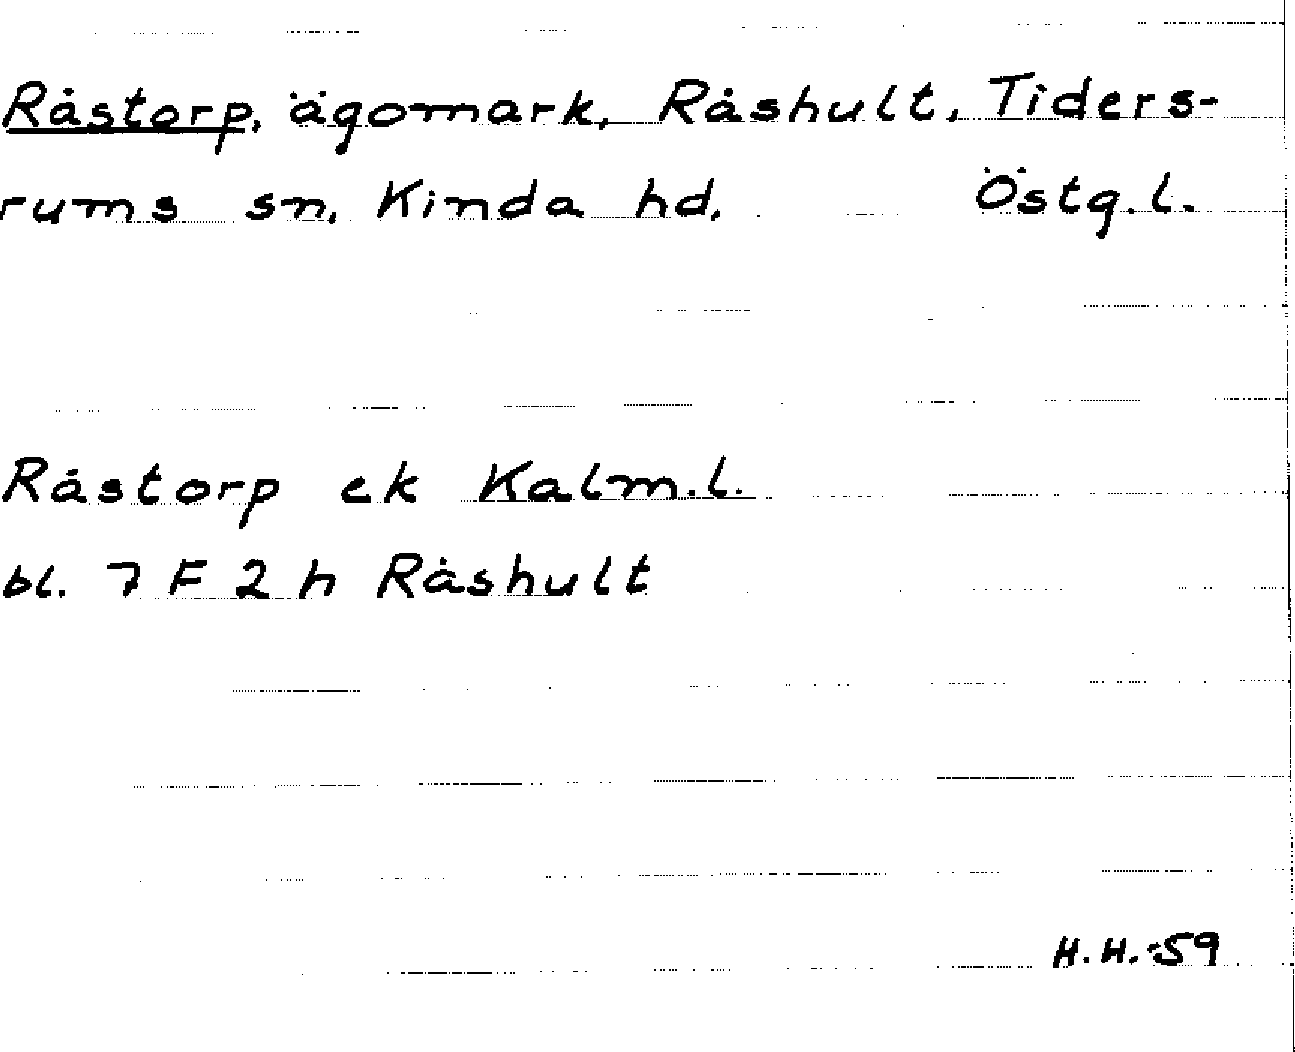 Råstorp, ägomark, Råshult, Tiders-
rums sn, Kinda hd, Östg.l.
Råstorp ek Kalm.l.
bl. 7 F 2 h Råshult
H.H.-59